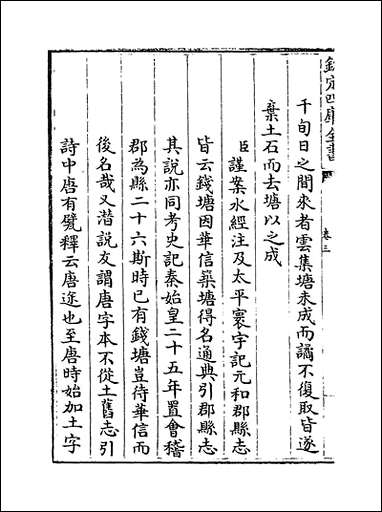 欽定四庫全書
卷三
千旬日之間來者雲集塘未成而譎不復取皆遂
棄土石而去塘以之成
臣謹案水經注及太平寰宇記元和郡縣志
皆云錢塘因華信築塘得名通典引郡縣志
其說亦同考史記秦始皇二十五年置會稽
郡為縣二十六斯時已有錢塘豈待華信而
後名哉又潛說友謂唐字本不從土舊志引
詩中唐有甓釋云唐途也至唐時始加土字